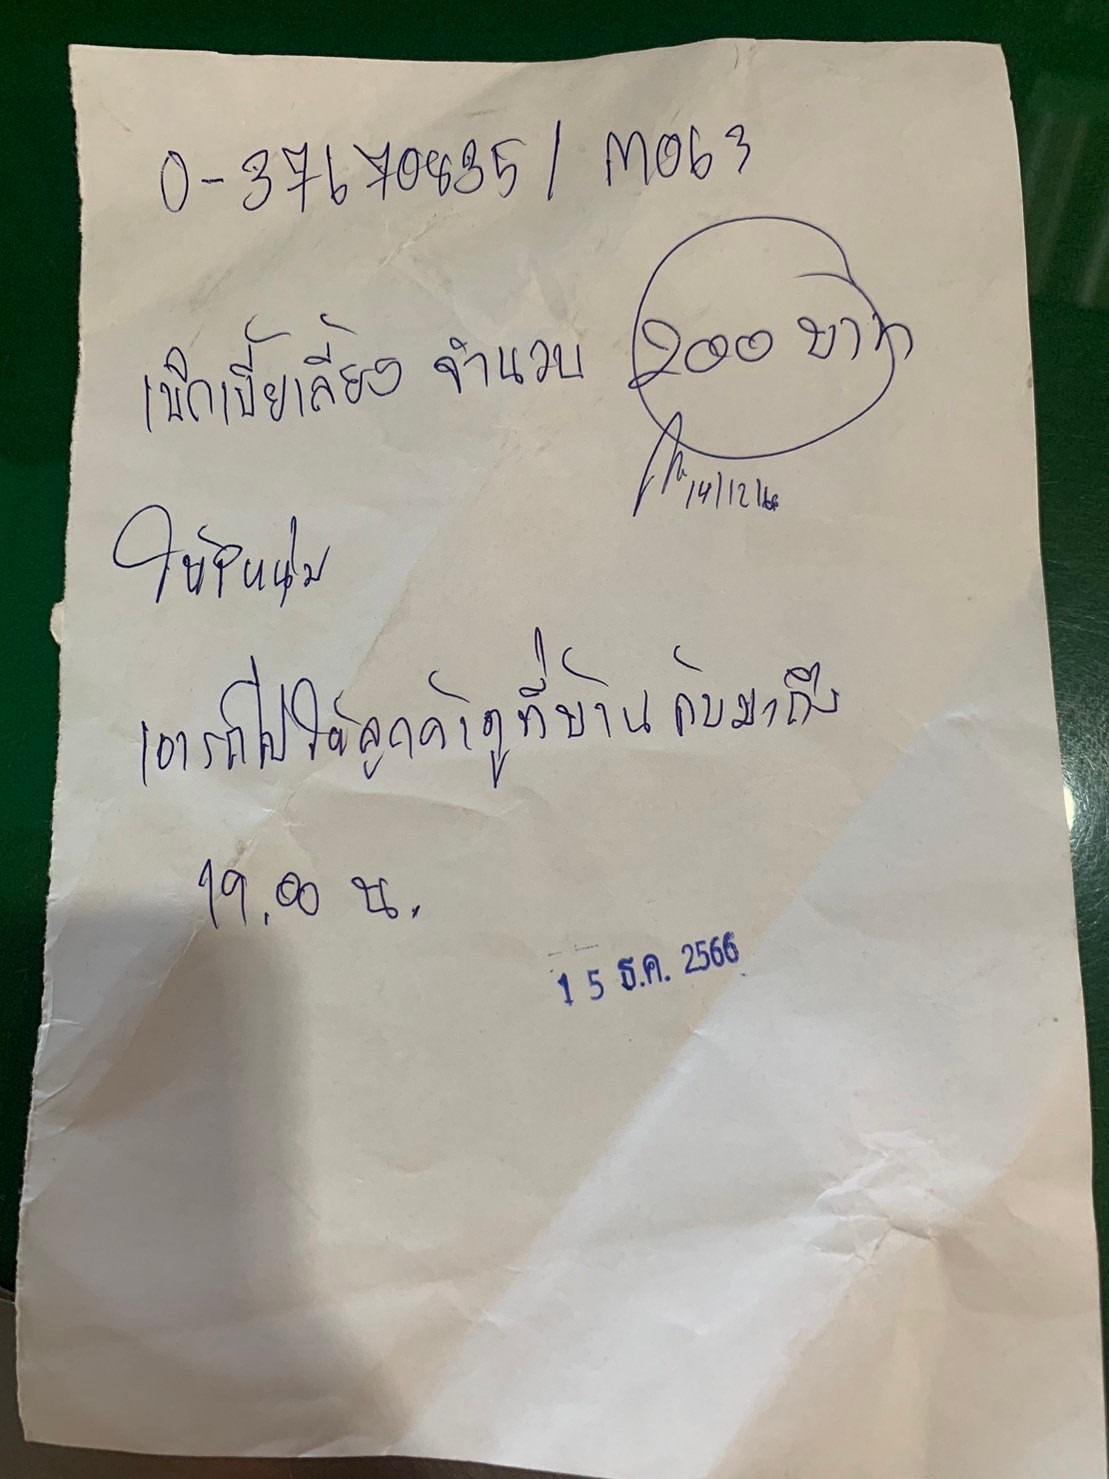 0-37670835 / M063
เบิกเบี้ยเลี้ยง จำนวน 200 บาท
14/12/66
ให้พี่หนุ่ม
เอารถไปให้ลูกค้าดูที่บ้าน กลับมาถึง
19.00 น.
15 ธ.ค. 2566